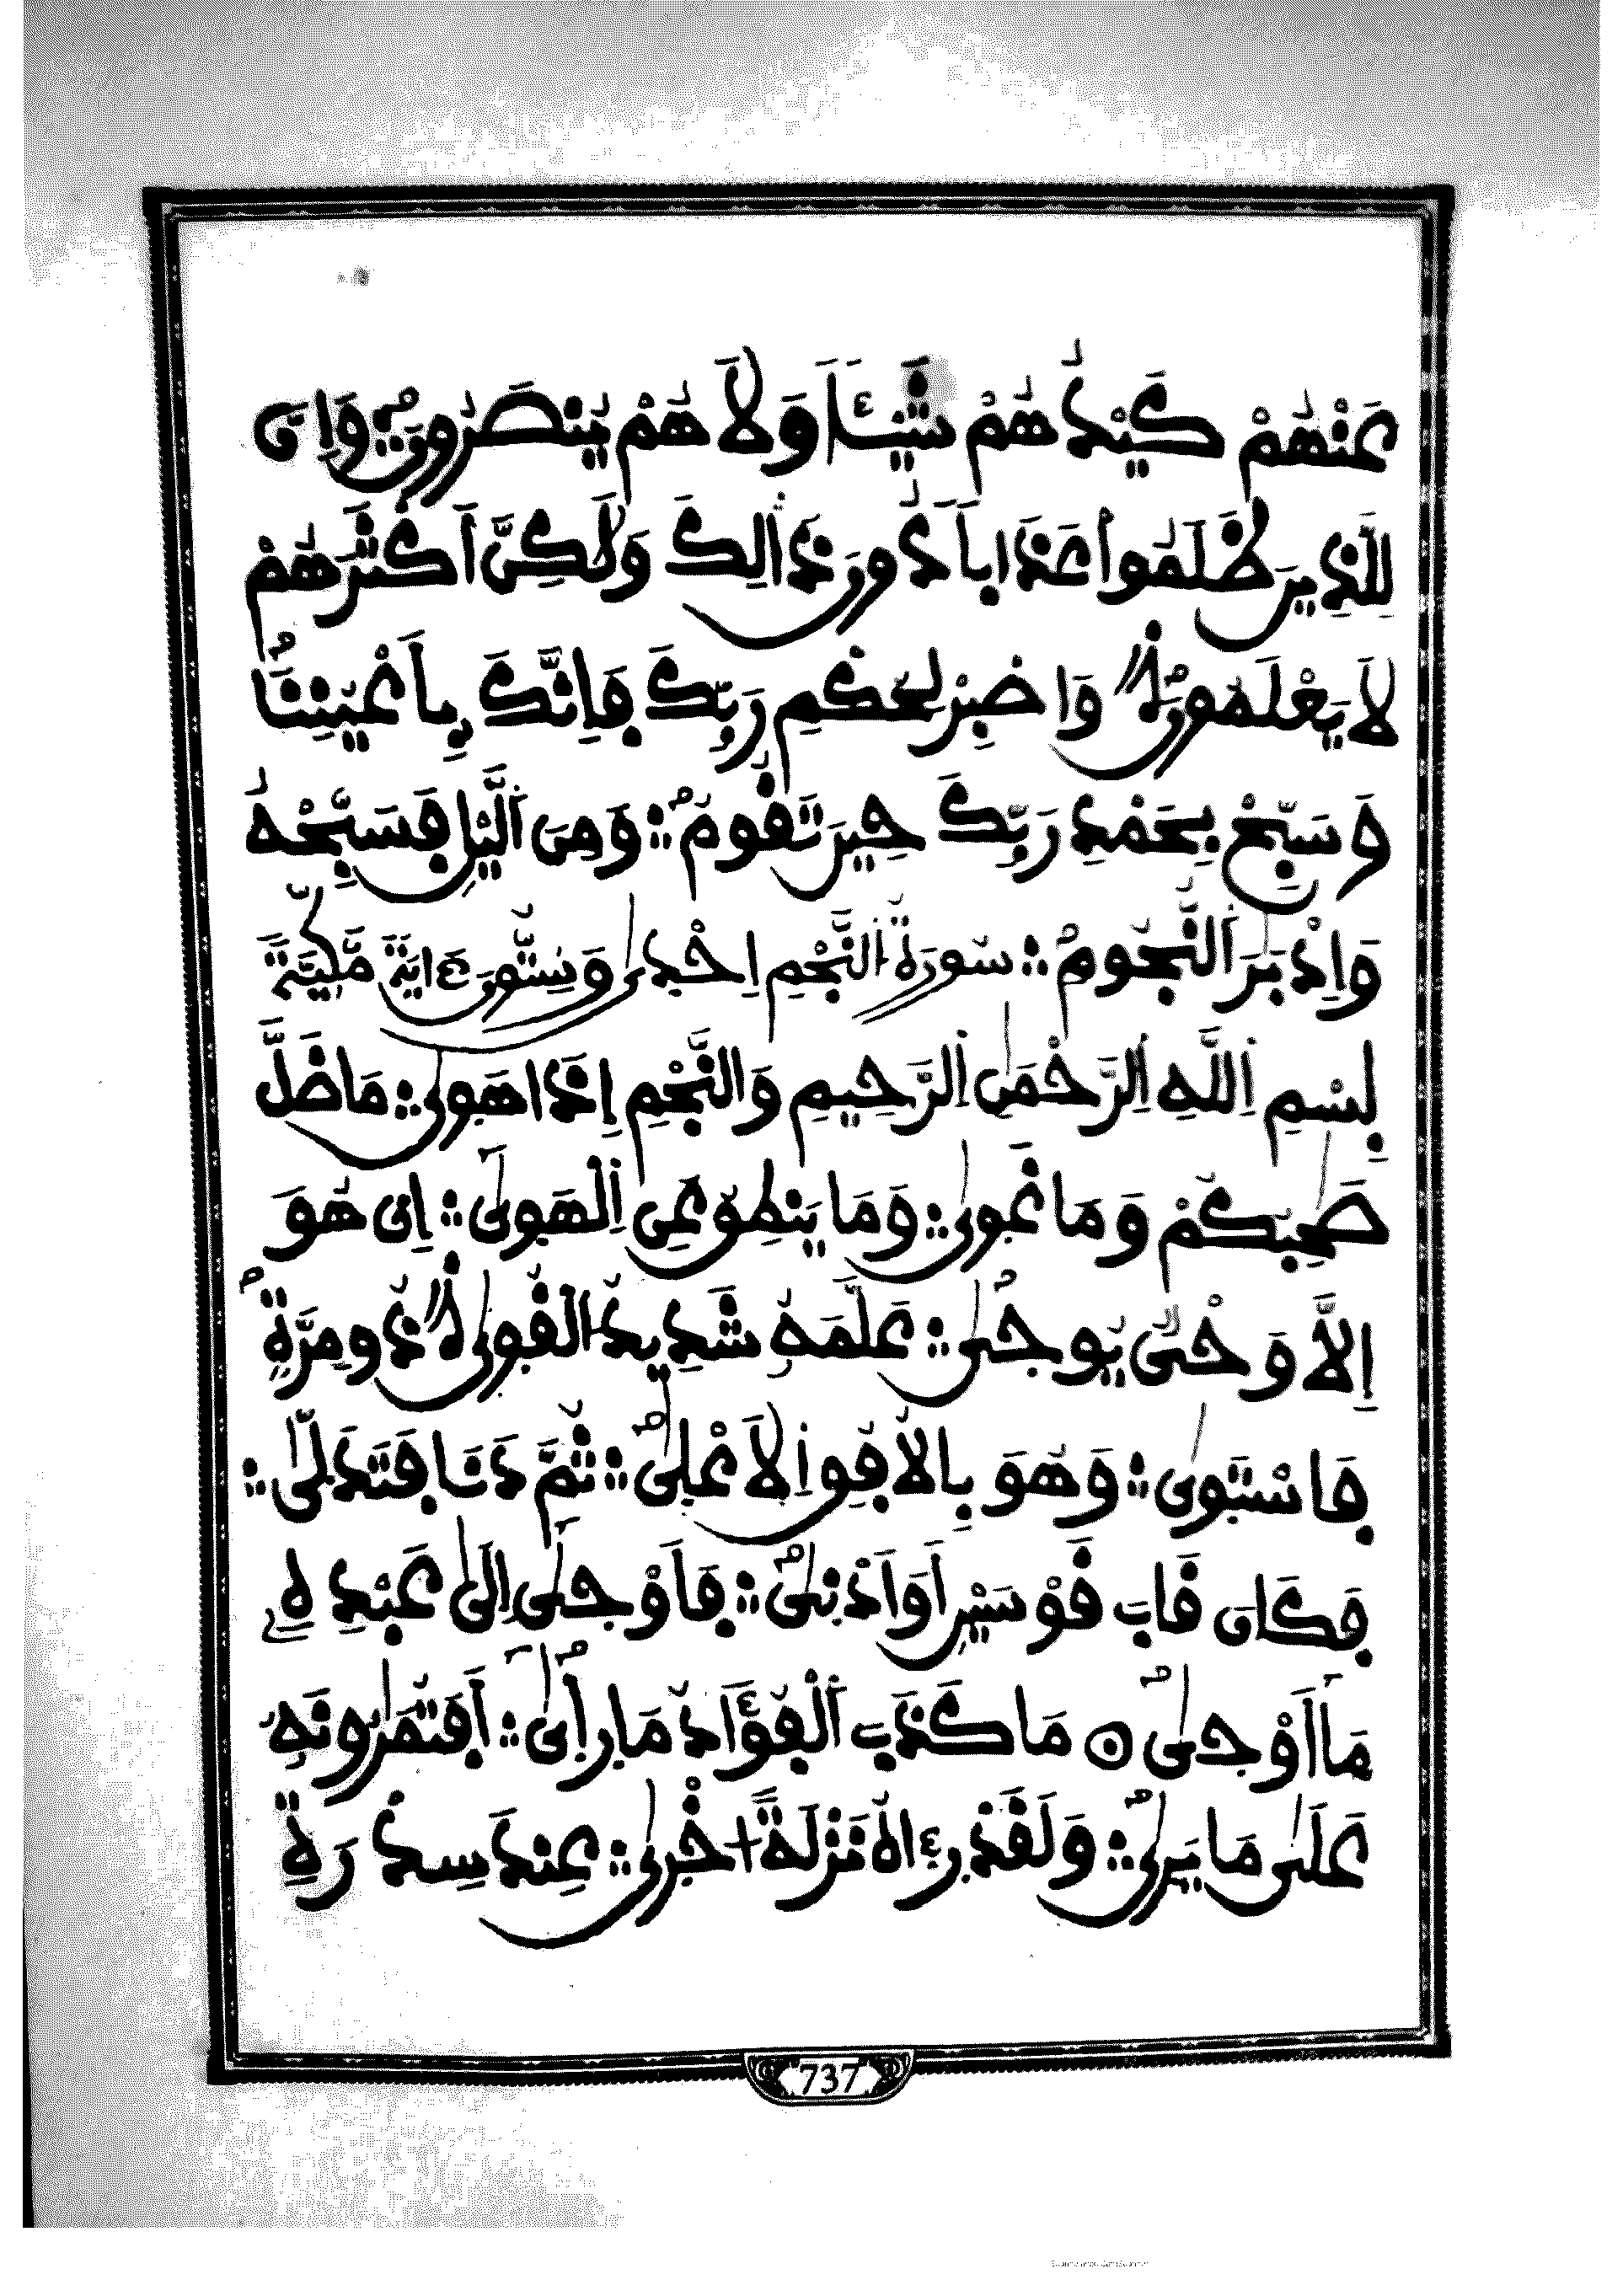 عَنْهُمْ كَيْدُهُمْ شَيْـًٔا وَلَا هُمْ يُنصَرُونَ وَإِنَّ
لِلَّذِينَ ظَلَمُوا عَذَابًا دُونَ ذَالِكَ وَلَكِنَّ أَكْثَرَهُمْ
لَا يَعْلَمُونَ وَاصْبِرْ لِحُكْمِ رَبِّكَ فَإِنَّكَ بِأَعْيُنِنَا
وَسَبِّحْ بِحَمْدِ رَبِّكَ حِينَ تَقُومُ ۝ وَمِنَ اَلَّيْلِ فَسَبِّحْهُ
وَإِدْبَرَ اَلنُّجُومِ ۝ سُورَةُ اُلنَّجْمِ إِحْدَى وَسِتُّونَ ءَايَةً مَّكِّيَّةٌ
بِسْمِ اِللَّهِ اِلرَّحْمَنِ اِلرَّحِيمِ وَالنَّجْمِ إِذَا هَوَى ۝ مَا ضَلَّ
صَحِبُكُمْ وَمَا غَوَى ۝ وَمَا يَنطِقُ عَنِ اِلْهَوَى ۝ إِنْ هُوَ
إِلَّا وَحْىٌ يُوحَى ۝ عَلَّمَهُ شَدِيدُ اُلْقُوَى ذُو مِرَّةٍ
فَاسْتَوَى ۝ وَهُوَ بِالْأُفُقِ اِلْأَعْلَى ۝ ثُمَّ دَنَا فَتَدَلَّى ۝
فَكَانَ قَابَ قَوْسَيْنِ أَوْ أَدْنَى ۝ فَأَوْحَى إِلَى عَبْدِهِ
مَا أَوْحَى ۝ مَا كَذَبَ اَلْفُؤَادُ مَا رَأَى ۝ أَفَتُمَرُونَهُ
عَلَى مَا يَرَى ۝ وَلَقَدْ رَءَاهُ نَزْلَةً اُخْرَى ۝ عِندَ سِدْرَةِ
737